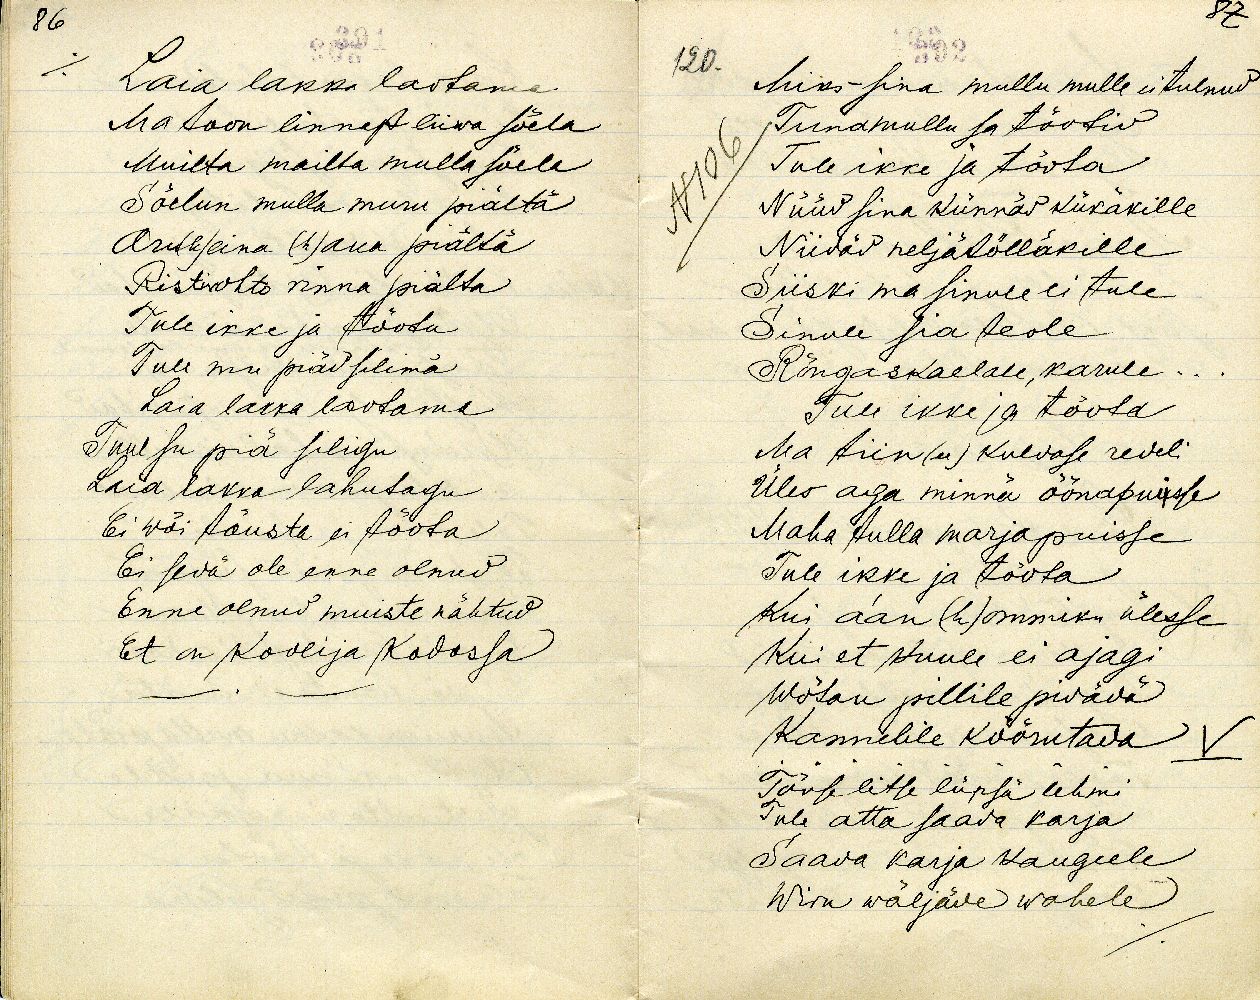 86
Laia lakka laotama
Ma toon linnast liiwa sõela
Muilta mailta mulla sõela
Sõelun mulla muru piältä
Aru(h)eina (h)aua piältä
Ristirohto rinna piälta
Tule ikke ja töota
Tule mu piäd silimä
Laia lakka laotama
Tuul su piä siligu
Laia lakka lahutagu
Ei wõi tõusta ei töota
Ei sedä ole enne olnud
Enne olnud muiste nähtud
Et on koolija kodossa
87
120.
A 106
Miks sina mullu mulle ei tulnud
Tunamullu sa töotid
Tule ikke ja töota
Nüüd sina künnäd kükäkille
Niidäd neljätõlläkille
Siiski ma sinule ei tule
Sinule sia teole
Rõngaskaelale, karule . . .
Tule ikke ja töota
Ma tiin (ei) kuldase redeli
Üles aga minnä õõnapuisse
Maha tulla marjapuisse
Tule ikke ja töota
Kui a'an (h)ommiku ülesse
Kui et kuule ei ajagi
Wõtan pillile pidädä
Kannelile köörutada
V
Tõuse litse lüpsä lehmi
Tule atta saada karja
Saada karja kaugeele
Wiru wäljäde wahele